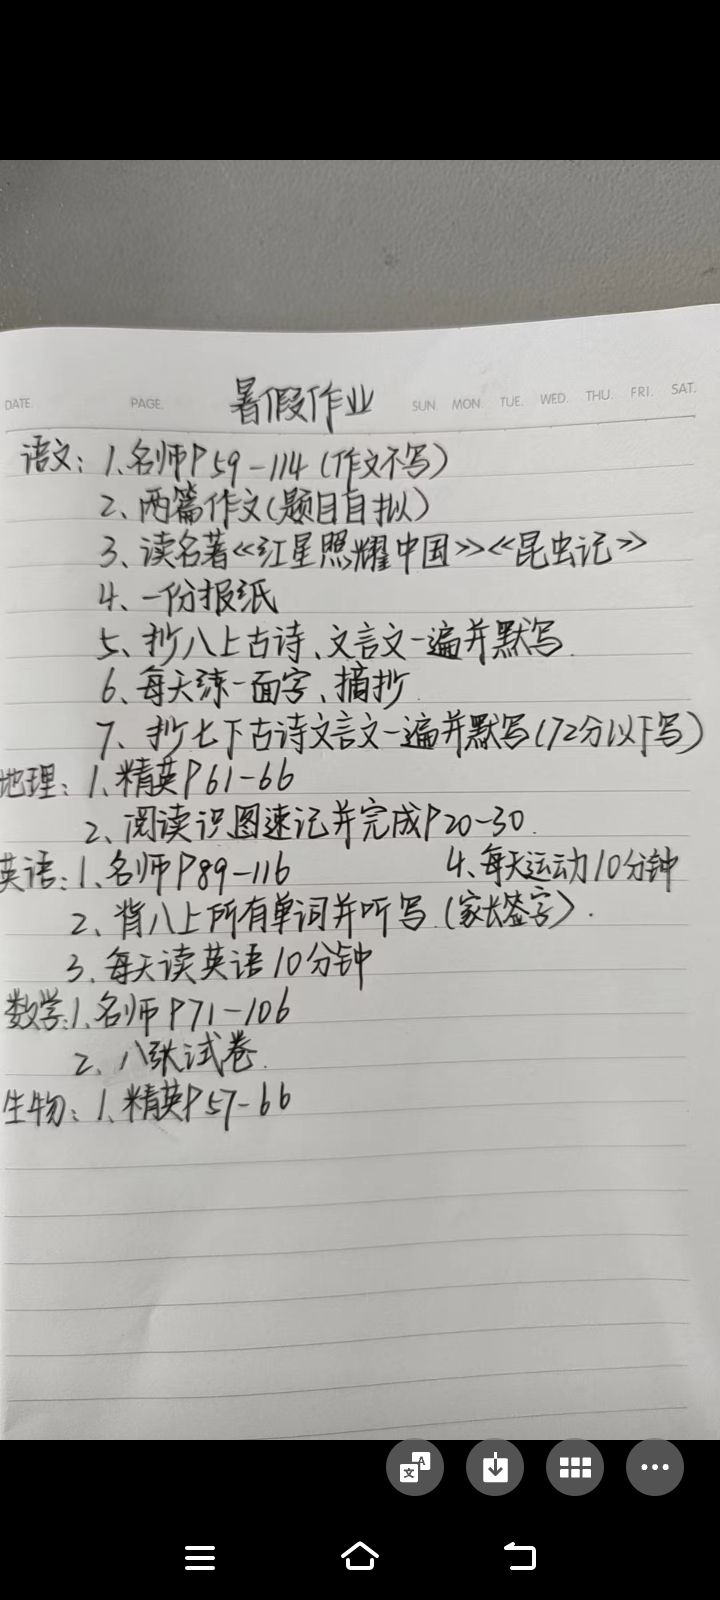 DATE. PAGE. 暑假作业 SUN. MON. TUE. WED. THU. FRI. SAT.
语文：1、名师P59-114（作文不写）
2、两篇作文（题目自拟）
3、读名著《红星照耀中国》《昆虫记》
4、一份报纸
5、抄八上古诗、文言文一遍并默写.
6、每天练一面字、摘抄.
7、抄七下古诗文言文一遍并默写（72分以下写）
地理：1、精英P61-66
2、阅读识图速记并完成P20-30.
英语：1、名师P89-116 4、每天运动10分钟
2、背八上所有单词并听写.（家长签字）.
3、每天读英语10分钟
数学：1、名师P71-106
2、八张试卷.
生物：1、精英P57-66